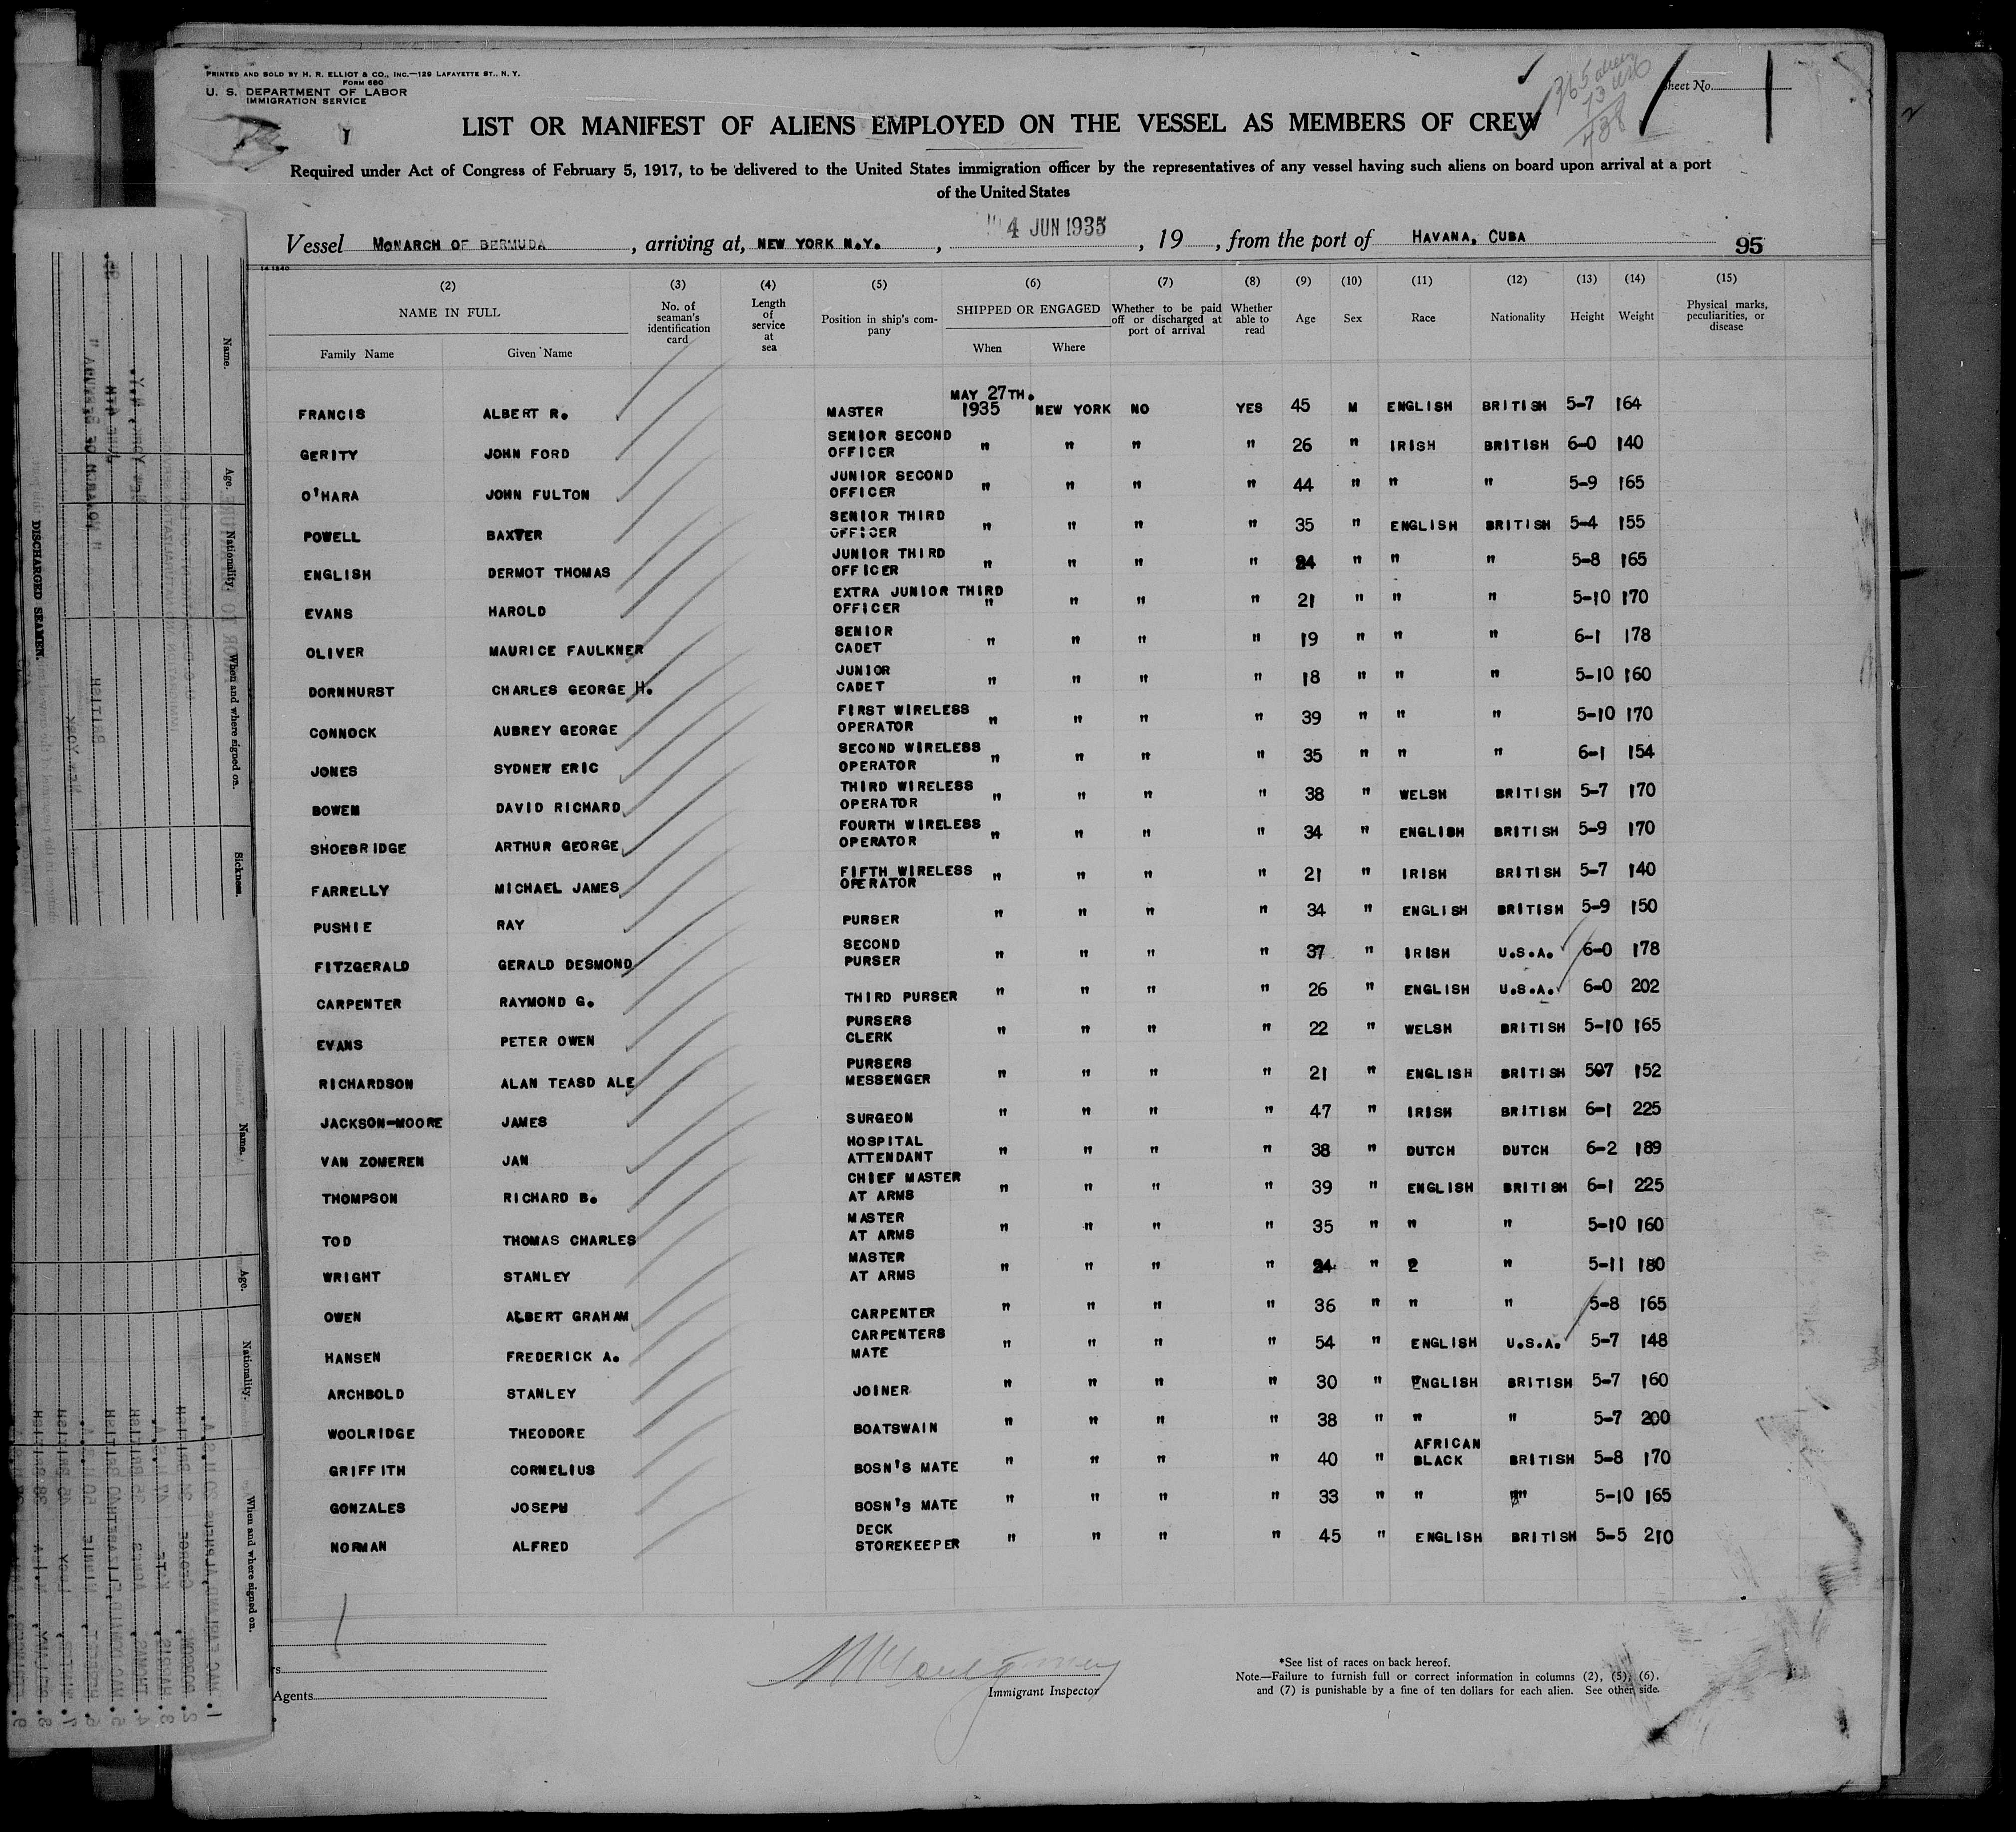 PRINTED AND SOLD BY H. R. ELLIOT & CO., INC.—129 LAFAYETTE ST., N. Y.
FORM 680
U. S. DEPARTMENT OF LABOR
IMMIGRATION SERVICE
Sheet No.
1
LIST OR MANIFEST OF ALIENS EMPLOYED ON THE VESSEL AS MEMBERS OF CREW
Required under Act of Congress of February 5, 1917, to be delivered to the United States immigration officer by the representatives of any vessel having such aliens on board upon arrival at a port
of the United States
Vessel MONARCH OF BERMUDA, arriving at, NEW YORK N.Y., 4 JUN 1935, 19, from the port of HAVANA, CUBA 95
(2) (3) (4) (5) (6) (7) (8) (9) (10) (11) (12) (13) (14) (15)
NAME IN FULL No. of seaman's identification card Length of service at sea Position in ship's company SHIPPED OR ENGAGED Whether to be paid off or discharged at port of arrival Whether able to read Age Sex Race Nationality Height Weight Physical marks, peculiarities, or disease
Family Name Given Name When Where
FRANCIS ALBERT R. MASTER MAY 27TH. 1935 NEW YORK NO YES 45 M ENGLISH BRITISH 5-7 164
GERITY JOHN FORD SENIOR SECOND OFFICER " " " " 26 " IRISH BRITISH 6-0 140
O'HARA JOHN FULTON JUNIOR SECOND OFFICER " " " " 44 " " " 5-9 165
POWELL BAXTER SENIOR THIRD OFFICER " " " " 35 " ENGLISH BRITISH 5-4 155
ENGLISH DERMOT THOMAS JUNIOR THIRD OFFICER " " " " 24 " " " 5-8 165
EVANS HAROLD EXTRA JUNIOR THIRD OFFICER " " " " 21 " " " 5-10 170
OLIVER MAURICE FAULKNER SENIOR CADET " " " " 19 " " " 6-1 178
DORNHURST CHARLES GEORGE H. JUNIOR CADET " " " " 18 " " " 5-10 160
CONNOCK AUBREY GEORGE FIRST WIRELESS OPERATOR " " " " 39 " " " 5-10 170
JONES SYDNEY ERIC SECOND WIRELESS OPERATOR " " " " 35 " " " 6-1 154
BOWEN DAVID RICHARD THIRD WIRELESS OPERATOR " " " " 38 " WELSH BRITISH 5-7 170
SHOEBRIDGE ARTHUR GEORGE FOURTH WIRELESS OPERATOR " " " " 34 " ENGLISH BRITISH 5-9 170
FARRELLY MICHAEL JAMES FIFTH WIRELESS OPERATOR " " " " 21 " IRISH BRITISH 5-7 140
PUSHIE RAY PURSER " " " " 34 " ENGLISH BRITISH 5-9 150
FITZGERALD GERALD DESMOND SECOND PURSER " " " " 37 " IRISH U.S.A. 6-0 178
CARPENTER RAYMOND G. THIRD PURSER " " " " 26 " ENGLISH U.S.A. 6-0 202
EVANS PETER OWEN PURSERS CLERK " " " " 22 " WELSH BRITISH 5-10 165
RICHARDSON ALAN TEASD ALE PURSERS MESSENGER " " " " 21 " ENGLISH BRITISH 507 152
JACKSON-MOORE JAMES SURGEON " " " " 47 " IRISH BRITISH 6-1 225
VAN ZOMEREN JAN HOSPITAL ATTENDANT " " " " 38 " DUTCH DUTCH 6-2 189
THOMPSON RICHARD B. CHIEF MASTER AT ARMS " " " " 39 " ENGLISH BRITISH 6-1 225
TOD THOMAS CHARLES MASTER AT ARMS " " " " 35 " " " 5-10 160
WRIGHT STANLEY MASTER AT ARMS " " " " 24 " 2 " 5-11 180
OWEN ALBERT GRAHAM CARPENTER " " " " 36 " " " 5-8 165
HANSEN FREDERICK A. CARPENTERS MATE " " " " 54 " ENGLISH U.S.A. 5-7 148
ARCHBOLD STANLEY JOINER " " " " 30 " ENGLISH BRITISH 5-7 160
WOOLRIDGE THEODORE BOATSWAIN " " " " 38 " " " 5-7 200
GRIFFITH CORNELIUS BOSN'S MATE " " " " 40 " AFRICAN BLACK BRITISH 5-8 170
GONZALES JOSEPH BOSN'S MATE " " " " 33 " " " 5-10 165
NORMAN ALFRED DECK STOREKEEPER " " " " 45 " ENGLISH BRITISH 5-5 210
Agents
Immigrant Inspector
*See list of races on back hereof.
Note.—Failure to furnish full or correct information in columns (2), (5), (6),
and (7) is punishable by a fine of ten dollars for each alien. See other side.
DISCHARGED SEAMEN.
Name. Age. Nationality When and where signed on. Sickness.
Name. Age. Nationality. When and where signed on.